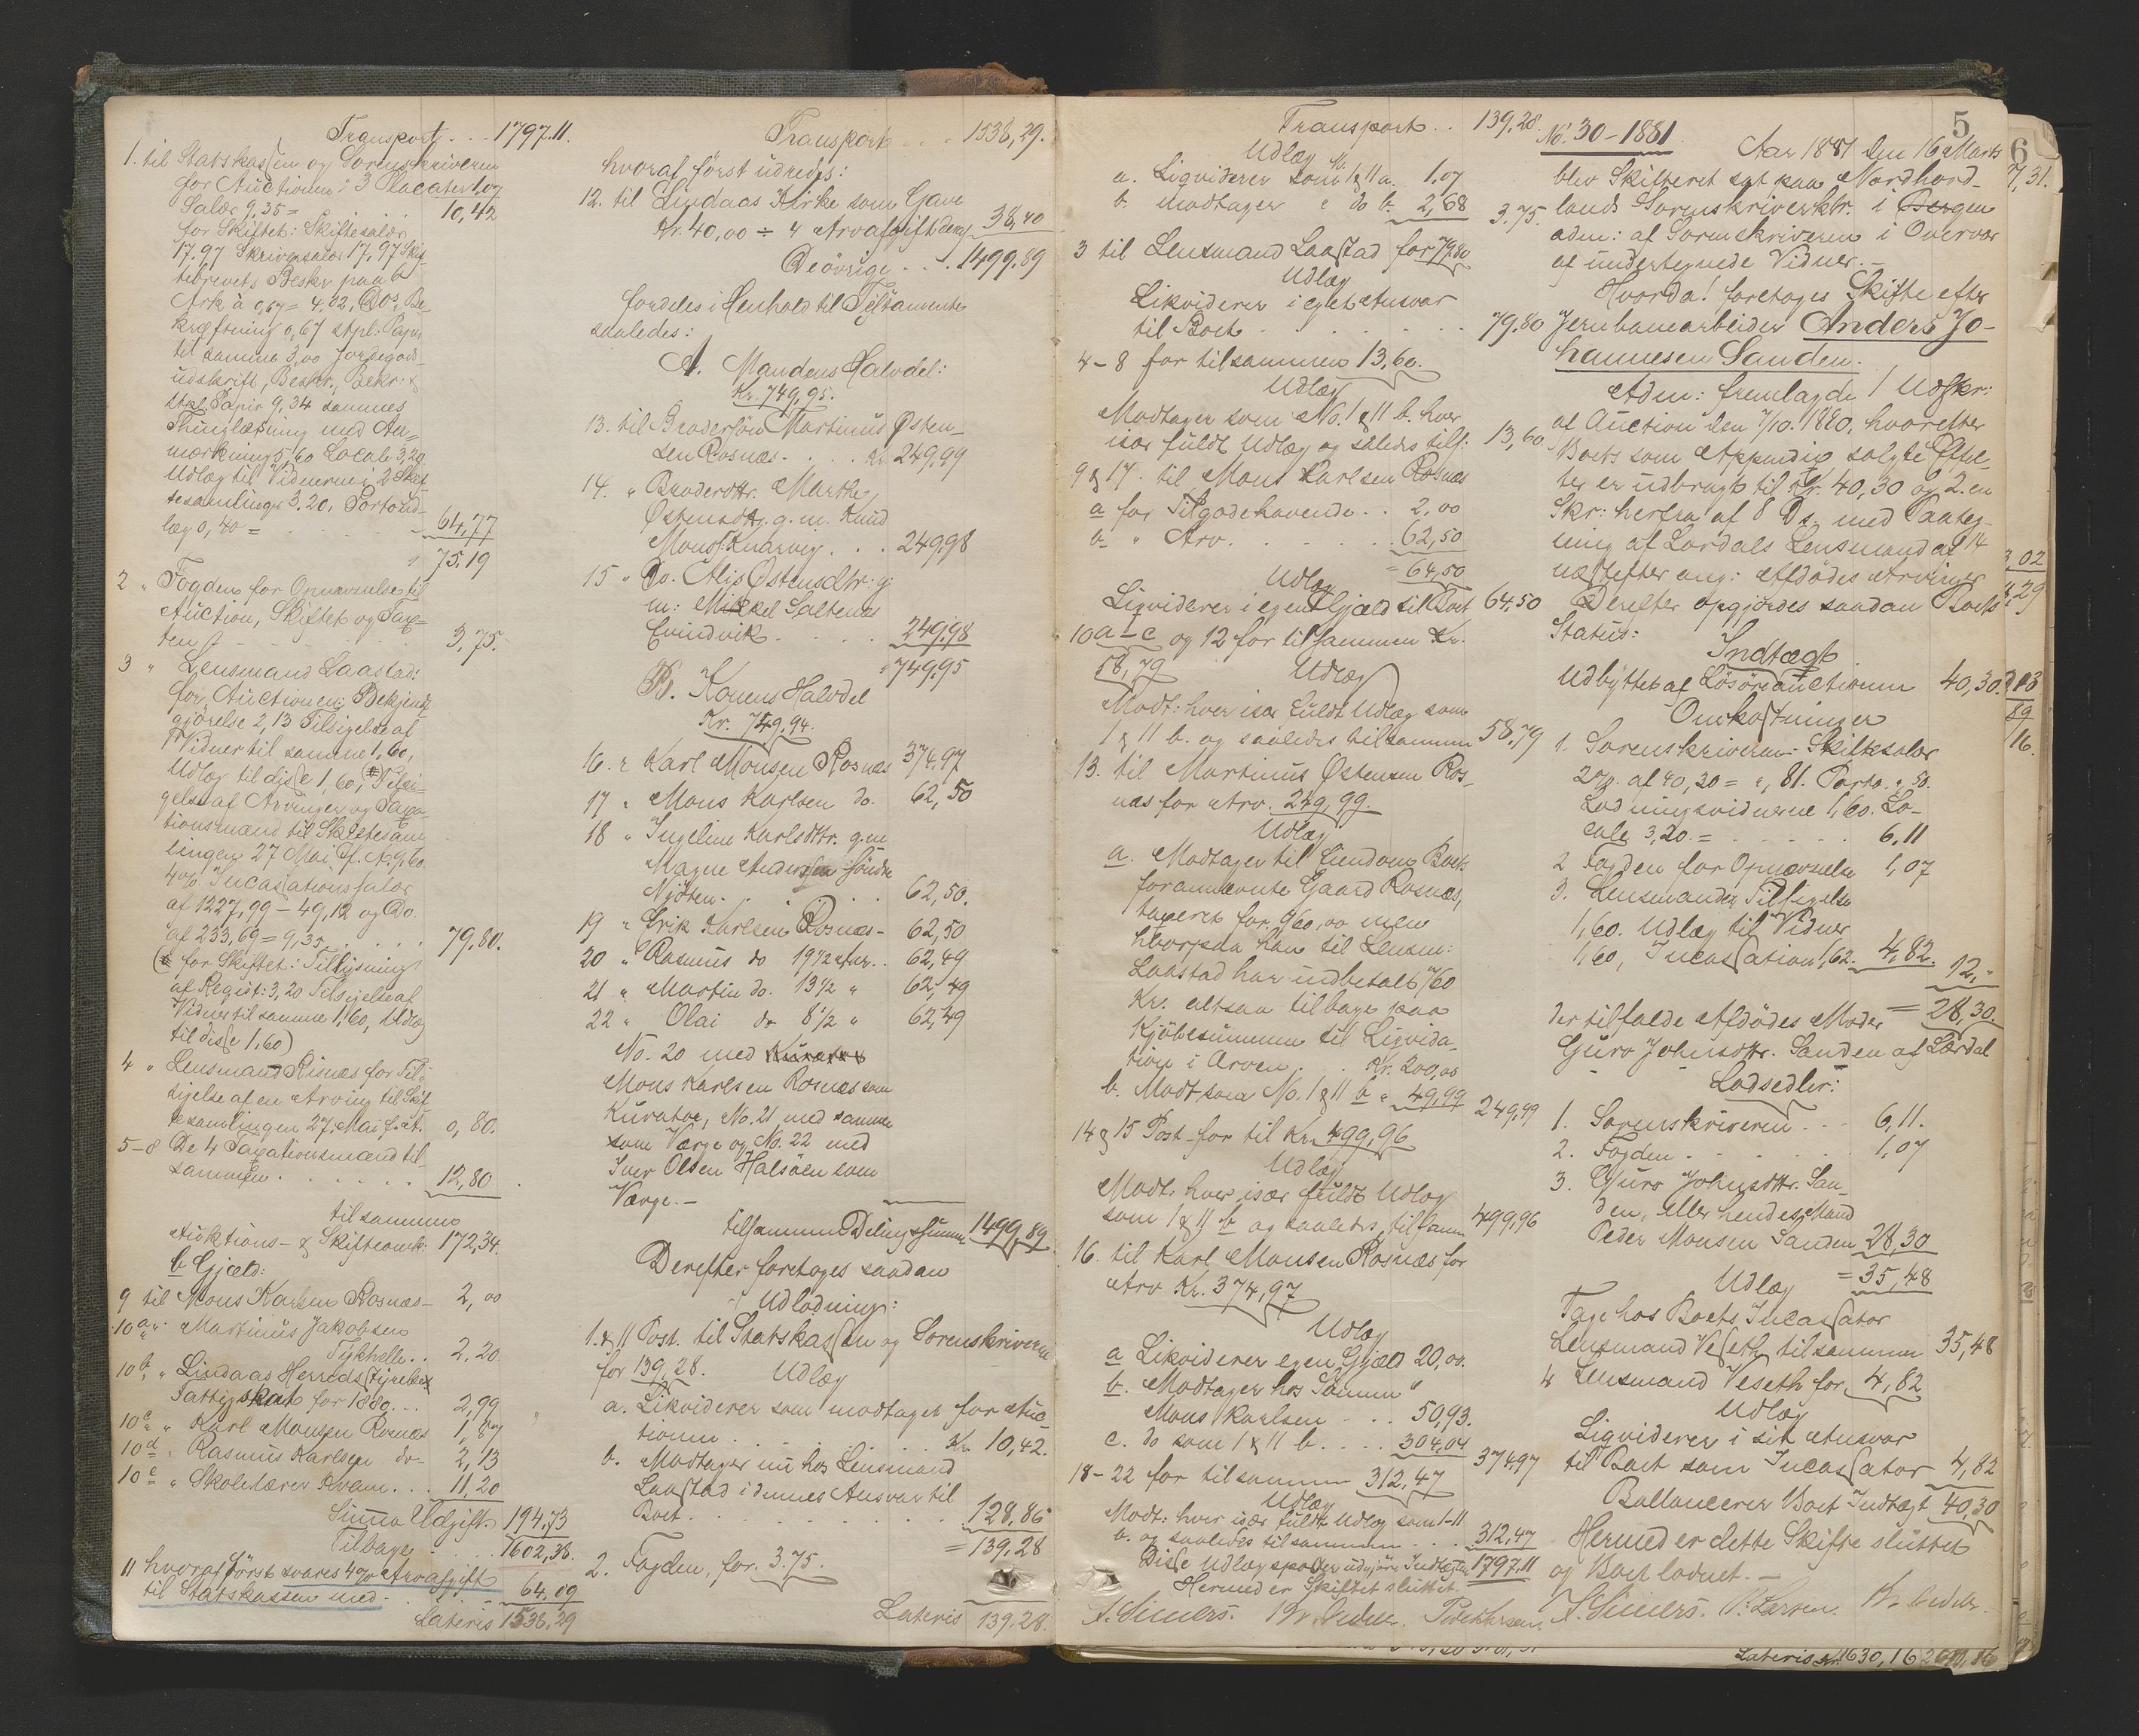 Transport . . . 1797.11.
1. til Statskassen og Sorenskriveren
for Auctionen: 3 Placater 1,07
Salær 9,35 = 10,42
for Skiftet: Skiftesalær
17.97 Skriversalær 17,97 Skif-
tebrevets Beskr. paa 6
Ark à 0,67 = 4,02, Do's Be-
kræftning 0,67 stpl. Papir
til samme 3,00 Jordegods
udskrift, Beskr., Bekr. &
stpl. Papir 9,34 sammes
Thinglæsning med An-
mærkning 5,60 Locale 3,20
Udlæg til Vidnerne i 2 Skif-
tesamlinger 3.20, Portoud-
læg 0,40 = 64,77
" 75.19
2 " Fogden for Opnævnelse til
Auction, Skiftet og Tax-
ten 3,75.
3 " Lensmand Laastad:
for Auctionen: Bekjendt-
gjörelse 2,13 Tilsigelse af
Vidner til samme 1,60,
Udlæg til disse 1,60, Tilsi-
gelse af Arvinger og Taxa-
tionsmænd til Skiftesam-
lingen 27 Mai f. A. 9,60.
4% Incassationssalær
af 1227,99 – 49,12 og Do.
af 233,69 = 9,35 . . . . 79,80.
(for Skiftet: Tillysning
af Regist: 3,20 Tilsigelse af
Vidner til samme 1,60, Udlæg
til disse 1,60)
4 " Lensmand Risnæs for Til-
sigelse af en Arving til Skif-
tesamlingen 27. Mai f. A. 0,80.
5–8 De 4 Taxationsmænd til-
sammen . . . . . . 12,80
tilsammen
Auktions- & Skifteomk: 172,34.
b Gjæld:
9 til Mons Karlsen Rosnæs – 2,00
10a " Martinus Jakobsen
Tykhelle . . 2,20
10b " Lindaas Herredsstyrelse
Fattigskat for 1880 . . . 2,99
10c " Karl Monsen Rosnæs 1,87
10d " Rasmus Karlsen do – 2,13
10e " Skolelærer Kvam . . . 11,20
Suma Udgift . 194,73
Tilbage . . . . 1602,38.
11 hvoraf först svares 4% Arvafgift
til Statskassen med . . . 64.09
Lateris 1538,29
Transport . . . 1538,29.
hvoraf först udredes:
12. til Lindaas Kirke som Gave
Kr. 40,00 ÷ 4 Arvafgift deraf 38,40
De övrige . . . 1499.89
fordeles i Henhold til Testamente
saaledes:
A. Mandens Halvdel:
Kr. 749,95.
13. til Brodersön Martinus Østen-
sen Rosnæs . . . . Kr. 249,99
14. " Broderdttr. Marthe
Østensdttr. g. m. Knud
Mons. Knarvig . . . 249,98
15 " Do. Alis Østensdttr: g.
m: Mikkel Saltenæs
Evindvik . . . . . 249.98
" 749.95
B. Konens Halvdel
Kr. 749.94.
16. " Karl Monsen Rosnæs 374.97
17 " Mons Karlsen do. 62,50
18 " Ingeline Karlsdttr. g. m.
Magne Andersen Söndre
. . . . . . 62,50.
19 " Erik Karlsen Rosnæs – 62,50
20 " Rasmus do 19½ Aar . . 62,49
21 " Martin do. 13½ " 62,49
22 " Olai do 8½ " 62,49
No. 20 med Kurator
Mons Karlsen Rosnæs som
Kurator, No. 21 med samme
som Værge og No. 22 med
Iver Olsen Halsöen som
Værge. –
tilsammen Delingssumma 1499,89
Derefter foretages saadan
Udlodning:
1. & 11 Post. til Statskassen og Sorenskriveren
for 139,28. Udlæg
a. Likviderer som modtaget for Auc-
tionen . . . . . . . Kr. 10,42.
b. Modtager nu hos Lensmand
Laastad i dennes Ansvar til
Boet . . . . . . . . . 128,86
= 139,28
2. Fogden, for 3.75.
Lateris 139,28.
Transport . . 139,28.
Udlæg
a. Liqviderer som No 1 & 11 a. 1.07
b. modtager " do b. 2,68 3.75.
3 til Lensmand Laastad for 79.80
Udlæg
Likviderer i eget Ansvar
til Boet . . . . . . . 79.80
4–8 for tilsammen 13,60.
Udlæg
Modtager som No. 1 & 11 b. hver
især fuldt Udlæg og saaledes tils: 13,60.
9 & 17. til Mons Karlsen Rosnæs
a for Tilgodehavende . . 2,00
b " Arv . . . . . . 62,50
= 64,50
Udlæg
Liqviderer i egen Gjæld til Boet 64.50
10 a–e og 12 for tilsammen Kr.
58,79 Udlæg
Modt: hver især fuldt Udlæg som
1 & 11 b. og saaledes tilsammen 58,79
13. til Martinus Østensen Ros-
næs for Arv. 249,99.
Udlæg
a. Modtager til Eiendom Boets
forannævnte Gaard Rosnæs,
taxeret for 960,00 men
hvorpaa han til Lensm:
Laastad har udbetalt 760
Kr. altsaa tilbage paa
Kjöbesummen til Liqvida-
tion i Arven . . Kr. 200,00
b. Modt. som No. 1 & 11 b " 49,99 249,99
14 & 15 Post for til Kr. 499,96
Udlæg
Modt. hver især fuldt Udlæg
som 1 & 11 b og saaledes tilsam: 499,96
16. til Karl Monsen Rosnæs for
Arv Kr. 374,97
Udlæg
a Likviderer egen Gjæld 20,00.
b. Modtager hos Sönnen
Mons Karlsen . . . 50,93.
c. do som 1 & 11 b . . . . 304,04 374.97
18–22 for tilsammen 312,47
Udlæg
Modt: hver især fuldt Udlæg som 1–11
b. og saaledes tilsammen . . . 312,47
Disse Udlægsposter udgjöre Indtægten 1797.11
Hermed er Skiftet sluttet.
5
No. 30 – 1881.
Aar 1881 den 16 Marts
blev Skifteret sat paa Nordhord-
lands Sorenskriverktr. i Bergen
adm: af Sorenskriveren i Overvær
af undertegnede Vidner. –
Hvorda! foretoges Skifte efter
Jernbanearbeider Anders Jo-
hannesen Sanden.
Adm: fremlagde 1 Udskr:
af Auction den 7/10. 1880, hvorefter
Boets som Appendix solgte Effek-
ter er udbragt til Kr. 40,30 og 2. en
Skr: herfra af 8 Ds. med Paateg-
ning af Lærdals Lensmand af 14
næstefter ang: Afdödes Arvinger
Derefter opgjordes saadan Boets
Status:
Indtægt
Udbyttet af Lösöreauctionen 40,30.
Omkostninger
1. Sorenskriveren: Skiftesalær
2% af 40,30 = ",81. Porto ",50.
Lodningsvidnerne 1,60. Lo-
cale 3,20. = . . . . . 6,11
2 Fogden for Opnævnelse 1,07
3. Lensmanden Tilsigelse
1,60. Udlæg til Vidner
1,60, Incassation 1,62. 4,82. 12,"
der tilfalde Afdödes Moder = 28,30.
Guro Johnsdttr. Sanden af Lærdal
Lodsedler:
1. Sorenskriveren . . . 6,11.
2. Fogden . . . . . . 1,07
3. Guro Johnsdttr. San-
den, eller hendes Mand
Peder Monsen Sanden 28,30
Udlæg = 35,48
Tage hos Boets Incassator
Lensmand Veseth tilsammen 35,48
4 Lensmand Veseth for 4,82
Udlæg
Liqviderer i sit Ansvar
til Boet som Incassator 4,82
Ballancerer Boet Indtægt 40,30
Hermed er dette Skifte sluttet
og Boet loddet. –
A. Simers. P. Larsen.
6
7,31.
3 02
16.
Lateris Kr. 1630,16